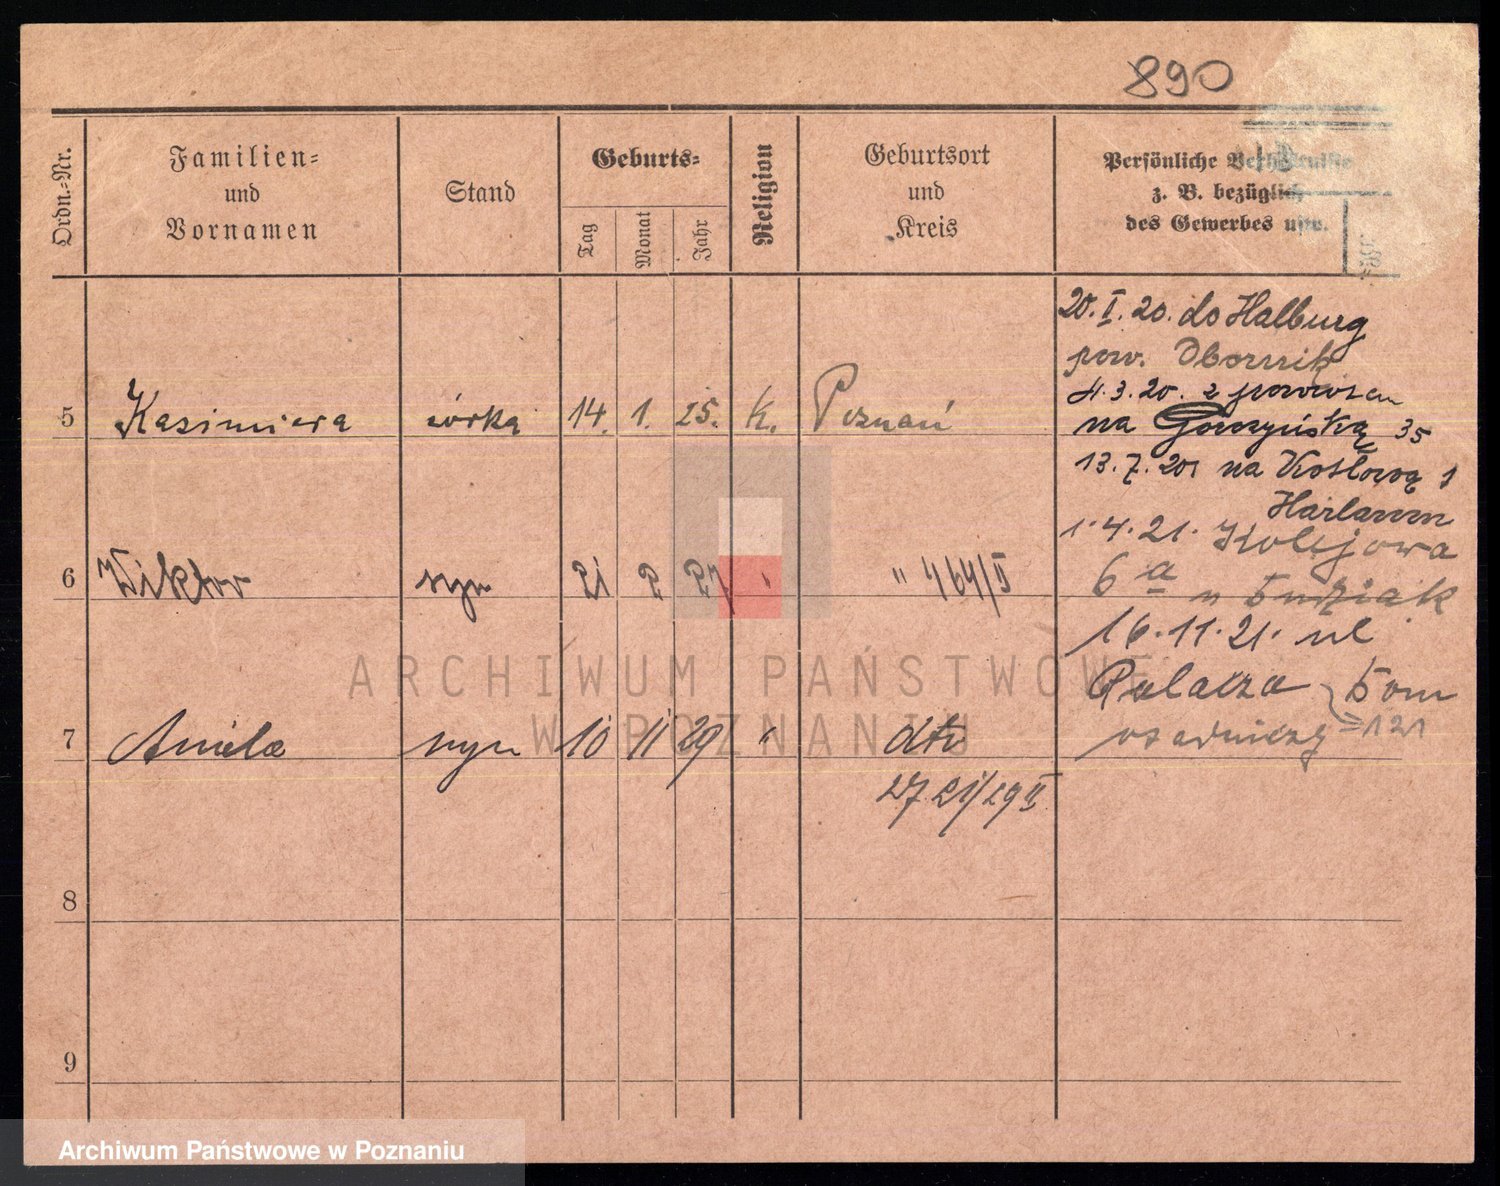 890
Ordn.=Nr.
Familien=
und
Vornamen
Stand
Geburts=
Tag
Monat
Jahr
Religion
Geburtsort
und
Kreis
Persönliche
z. B. bezüglich
des Gewerbes usw.
5 Kasimiera córka 14. 1. 25. K. Poznań
6 Wiktor syn 21 2 27 " " 464/II
7 Aniela syn 10 11 29 " dto
27 21/29 II
8
9
20. I. 20. do Halburg
pow. Obornik
4. 3. 20. z powrotem
na Gorczyńską 35
13. 7. 20 na Kosłową 1
1. 4. 21. Kolejowa
6 a u
16. 11. 21. ul
Palacza
osadniczy = 121
ARCHIWUM PAŃSTWOWE
W POZNANIU
Archiwum Państwowe w Poznaniu